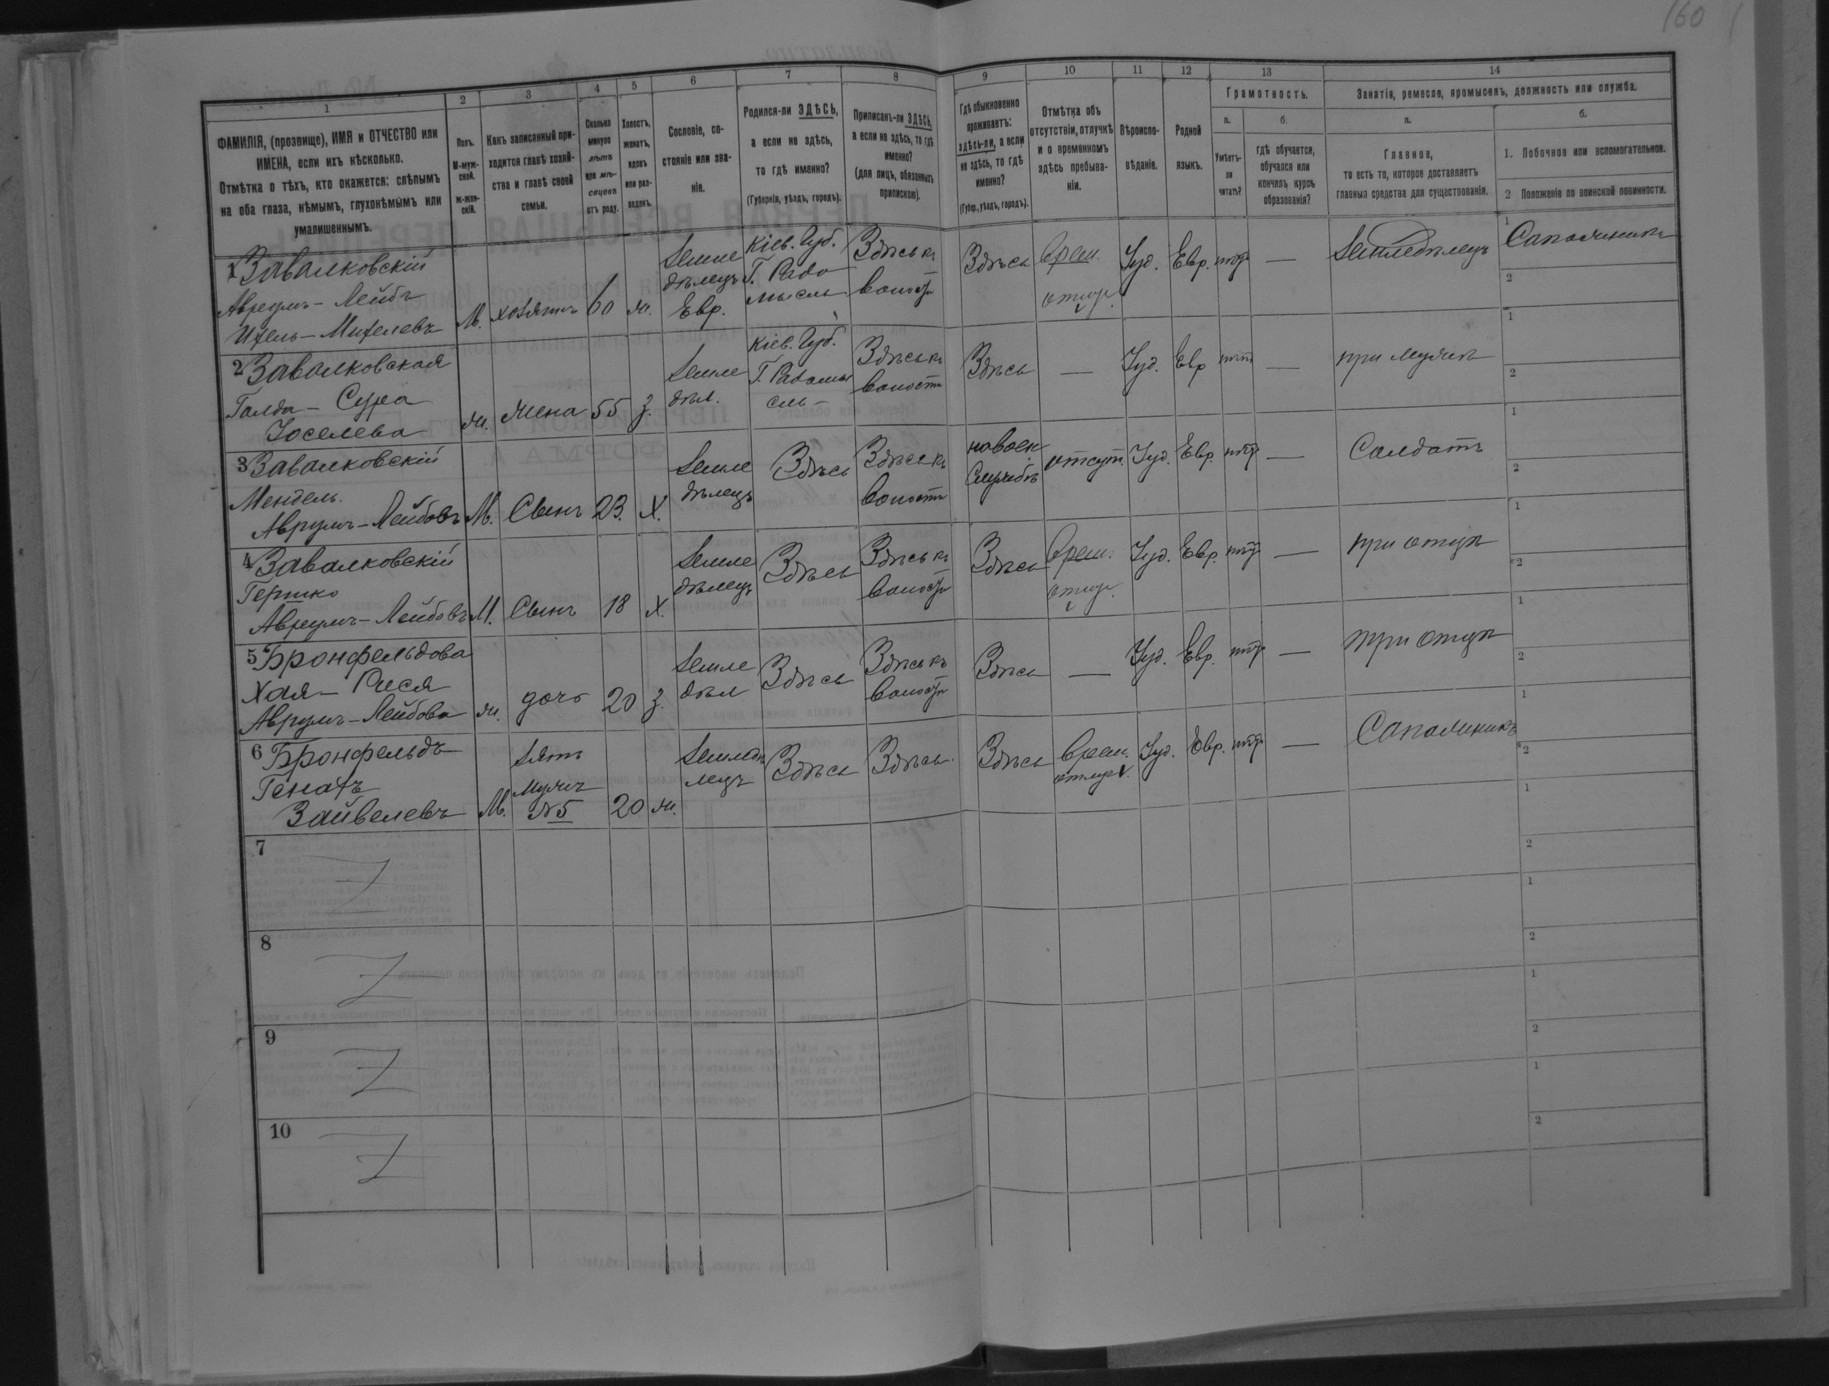 160
1 2 3 4 5 6 7 8 9 10 11 12 13 14
ФАМИЛІЯ, (прозвище), ИМЯ и ОТЧЕСТВО или
ИМЕНА, если ихъ нѣсколько.
Отмѣтка о тѣхъ, кто окажется: слѣпымъ
на оба глаза, нѣмымъ, глухонѣмымъ или
умалишеннымъ.
Полъ.
М-муж-
ской.
ж-жен-
скій.
Какъ записанный при-
ходится главѣ хозяй-
ства и главѣ своей
семьи.
Сколько
минуло
лѣтъ
или мѣ-
сяцевъ
отъ роду.
Холостъ,
женатъ,
вдовъ
или раз-
веденъ.
Сословіе, со-
стояніе или зва-
ніе.
Родился-ли ЗДѢСЬ,
а если не здѣсь,
то гдѣ именно?
(Губернія, уѣздъ, городъ).
Приписанъ-ли ЗДѢСЬ,
а если не здѣсь, то гдѣ
именно?
(для лицъ, обязанныхъ
припискою).
Гдѣ обыкновенно
проживаетъ:
здѣсь-ли, а если
не здѣсь, то гдѣ
именно?
(Губер., уѣздъ, городъ).
Отмѣтка объ
отсутствіи, отлучкѣ
и о временномъ
здѣсь пребыва-
ніи.
Вѣроиспо-
вѣданіе.
Родной
языкъ.
Грамотность.
а.
Умѣетъ-
ли
читать?
б.
гдѣ обучается,
обучался или
кончилъ курсъ
образованія?
Занятіе, ремесло, промыселъ, должность или служба.
а.
Главное,
то есть то, которое доставляетъ
главныя средства для существованія.
б.
1. Побочное или вспомогательное.
2 Положеніе по воинской повинности.
1 Завалковскій
Аврумъ-Лейбъ
Ицель-Михелевъ
М. хозяинъ 60 ж.
Земле
дѣлецъ
Евр.
Кіев. Губ.
Г. Радо
мысль
Здѣсь къ
волости
Здѣсь
Врем.
отлуч.
Іуд. Евр. —
Земледѣлецъ
2 Завалковская
Голда-Сура
Іоселева
ж. жена 55 з.
Земле
дѣл.
Кіев. Губ.
Г. Радомы
сль
Здѣсь къ
волости
Здѣсь — Іуд. Евр —
при мужѣ
3 Завалковскій
Мендель
Аврумъ-Лейбовъ
М. Сынъ 23. Х.
Земле
дѣлецъ
Здѣсь
Здѣсь къ
волости
на воен
службѣ
отсут. Іуд. Евр. —
Солдатъ
4 Завалковскій
Гершко
Аврумъ-Лейбовъ
М. Сынъ 18 Х
Земле
дѣлецъ
Здѣсь
Здѣсь къ
волости
Здѣсь
Врем.
отлуч.
Іуд. Евр. —
при отцѣ
5 Бронфельдова
Хая-Рися
Аврумъ-Лейбова
ж. дочь 20 з.
Земле
дѣл
Здѣсь
Здѣсь къ
волости
Здѣсь — Іуд. Евр. —
при отцѣ
6 Бронфельдъ
Генахъ
Зайвелевъ
М.
зять
мужъ
№5
20 ж.
Земледѣ
лецъ
Здѣсь Здѣсь Здѣсь
Врем.
отлуч.
Іуд. Евр. —
Сапожникъ
7
8
9
10